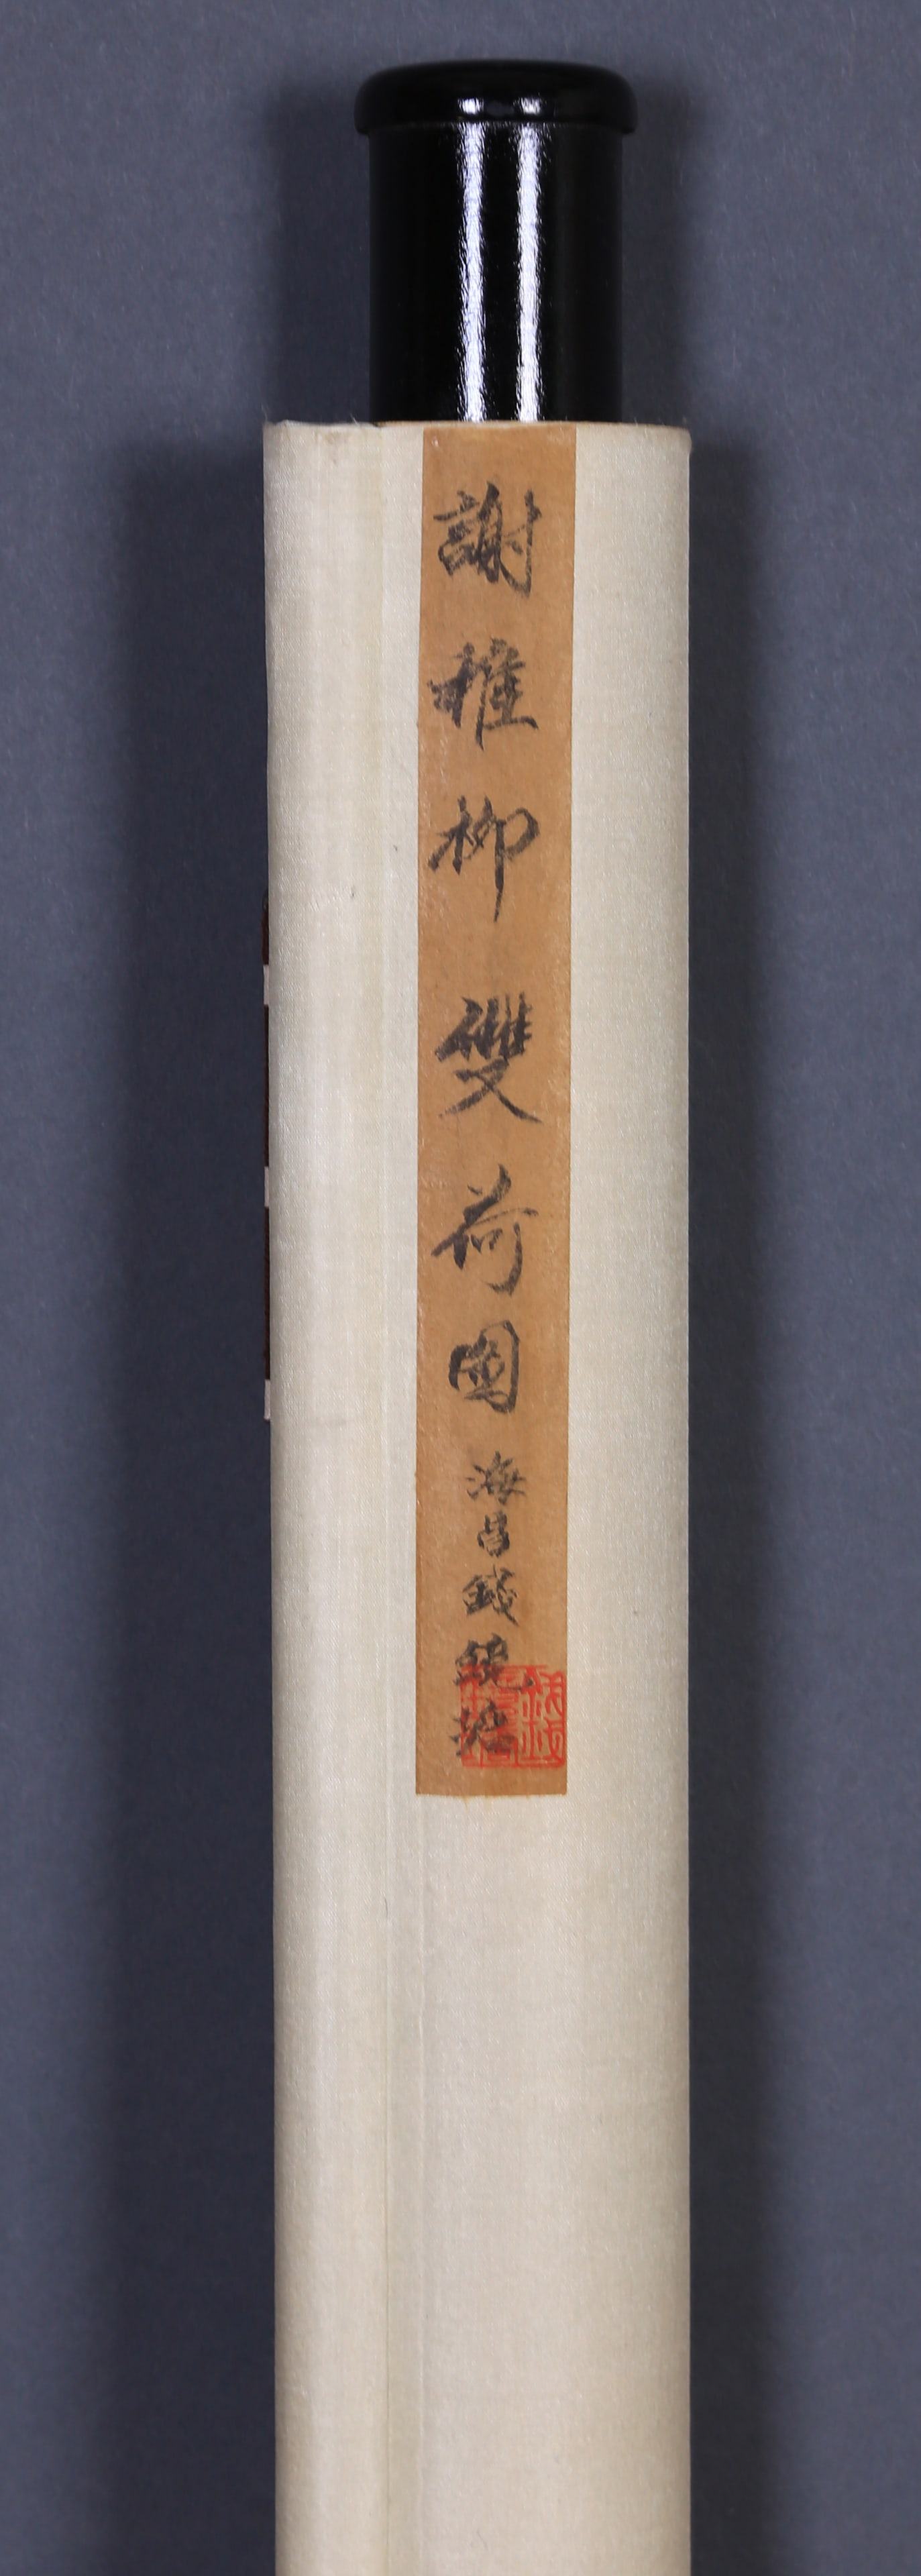 謝稚柳雙荷圖
海昌錢鏡塘